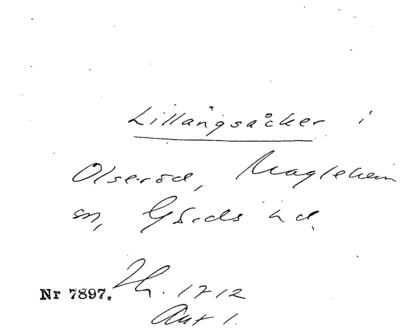 Lillångsåcker i
Olseröd, Maglehem
sn, Gärds hd.
Nr 7897. Th. 1712
Akt 1.